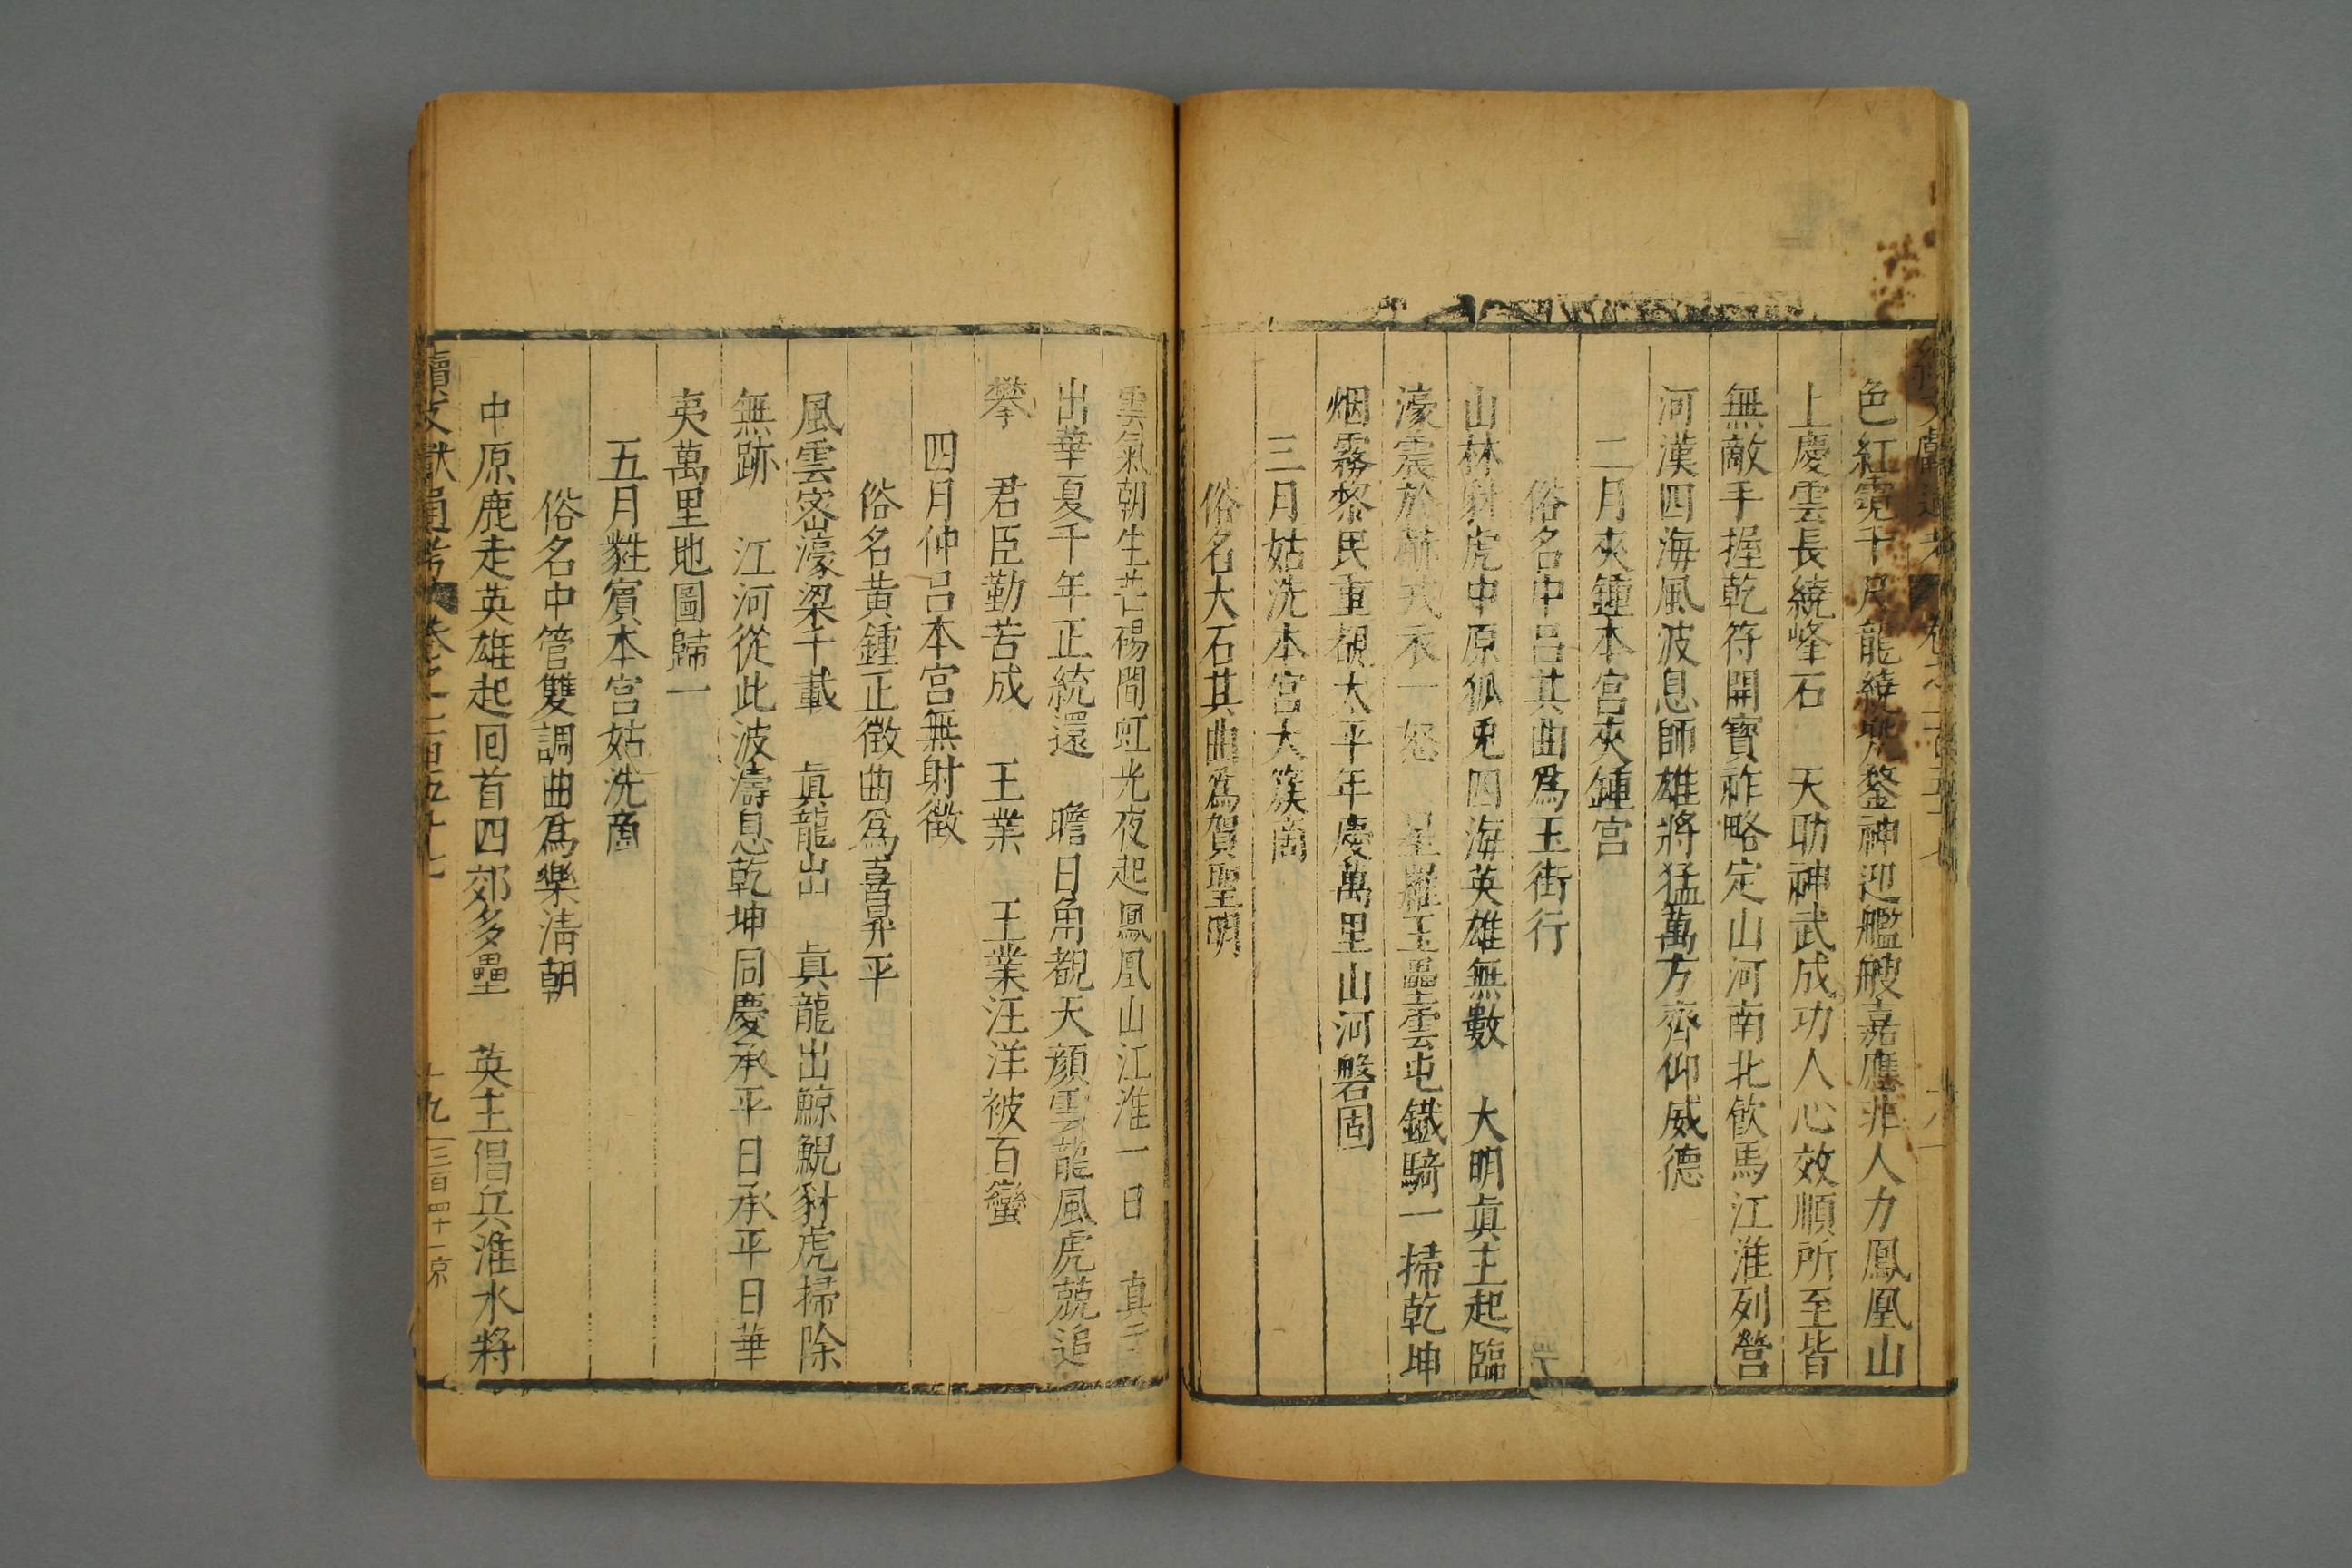 色紅霓千尺龍繞兠鍪神迎艦艘嘉應非人力鳳凰山
上慶雲長繞峰石 天助神武成功人心效順所至皆
無敵手握乾符開寳祚略定山河南北飲馬江淮列營
河漢四海風波息師雄將猛萬方齊仰威德
二月夾鍾本宮夾鍾宮
俗名中呂其曲爲玉街行
山林豺虎中原狐兎四海英雄無數 大明眞主起臨
濠震於赫戎衣一怒 星羅玉壘雲屯鐵騎一掃乾坤
烟霧黎民重覩太平年慶萬里山河磐固
三月姑洗本宮大簇商
俗名大石其曲爲賀聖明
雲氣朝生芒碭間虹光夜起鳳凰山江淮一日 真
出華夏千年正統還 瞻日角覩天顔雲龍風虎競追
攀 君臣勤苦成 王業 王業汪洋被百蠻
四月仲呂本宮無射徵
俗名黃鍾正徵曲爲喜昇平
風雲宻濠梁千載 眞龍出 眞龍出鯨鯢豺虎掃除
無跡 江河從此波濤息乾坤同慶承平日承平日華
夷萬里地圖歸一
五月蕤賓本宮姑洗商
俗名中管雙調曲爲樂淸朝
中原鹿走英雄起囘首四郊多壘 英主倡兵淮水將
續文獻通考 卷之一百五十七 十九 三百四十一 京